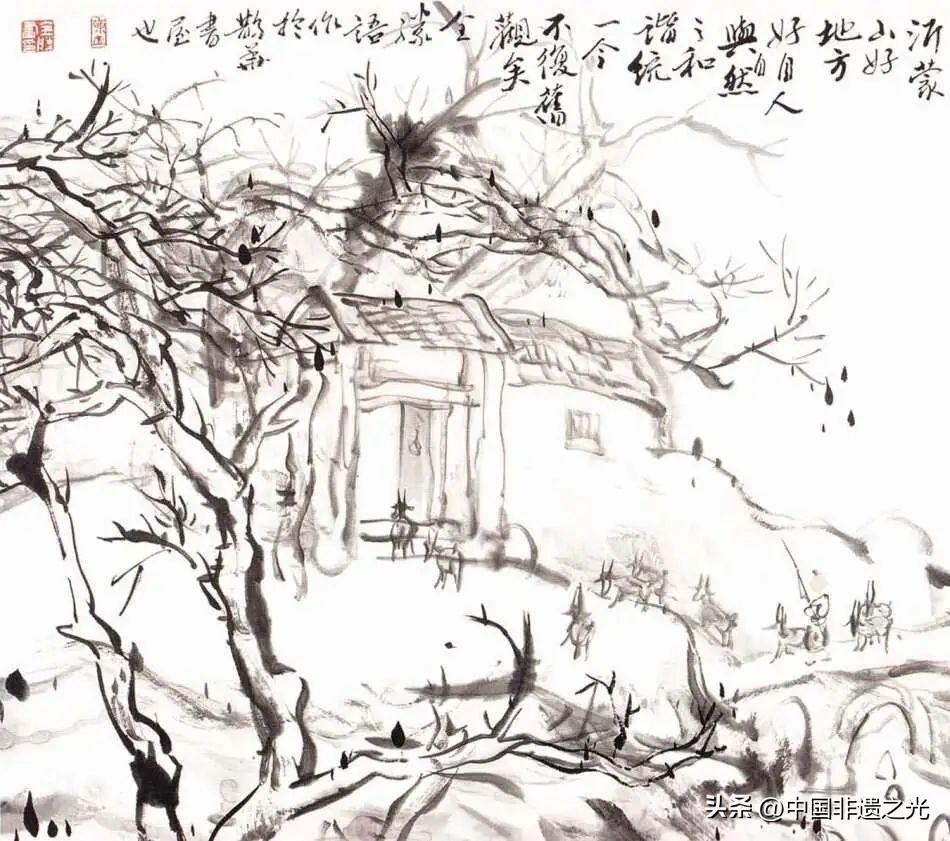 沂蒙
山好
地方
好自人
與自然
之和
諧統
一今
不復舊
觀矣
全
勝
語
作
於
鵲華
書
屋
也
头条 @中国非遗之光